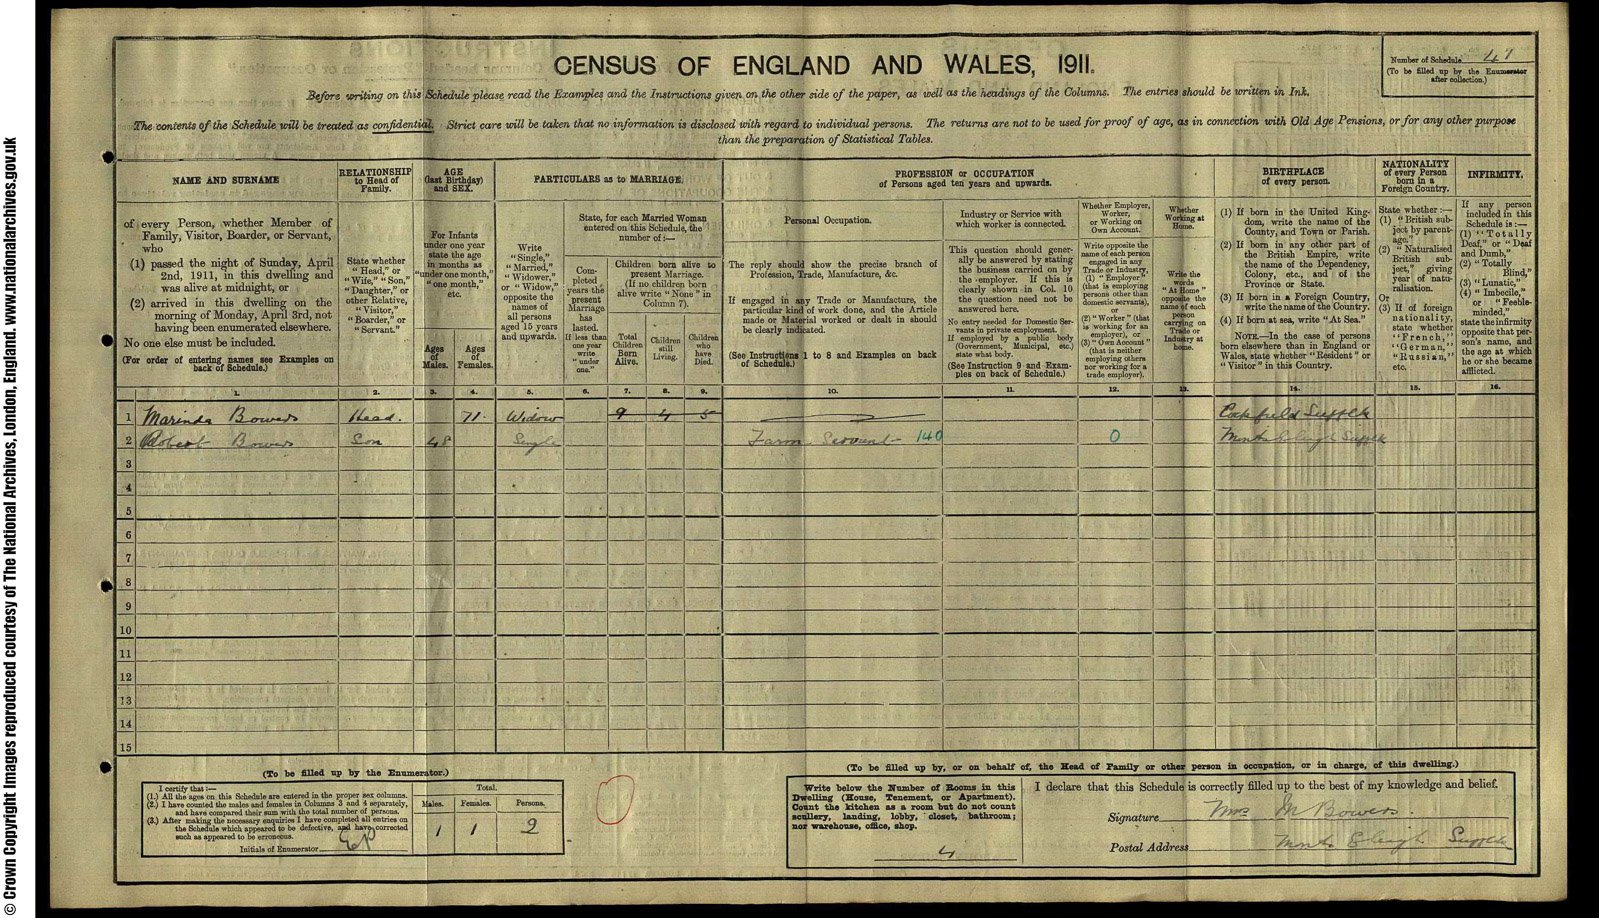 © Crown Copyright Images reproduced courtesy of The National Archives, London, England. www.nationalarchives.gov.uk
CENSUS OF ENGLAND AND WALES, 1911.
Number of Schedule 47
(To be filled up by the Enumerator after collection.)
Before writing on this Schedule please read the Examples and the Instructions given on the other side of the paper, as well as the headings of the Columns. The entries should be written in Ink.
The contents of the Schedule will be treated as confidential. Strict care will be taken that no information is disclosed with regard to individual persons. The returns are not to be used for proof of age, as in connection with Old Age Pensions, or for any other purpose
than the preparation of Statistical Tables.
NAME AND SURNAME
of every Person, whether Member of
Family, Visitor, Boarder, or Servant,
who
(1) passed the night of Sunday, April
2nd, 1911, in this dwelling and
was alive at midnight, or
(2) arrived in this dwelling on the
morning of Monday, April 3rd, not
having been enumerated elsewhere.
No one else must be included.
(For order of entering names see Examples on
back of Schedule.)
RELATIONSHIP
to Head of
Family.
State whether
"Head," or
"Wife," "Son,"
"Daughter," or
other Relative,
"Visitor,"
"Boarder," or
"Servant."
AGE
(last Birthday)
and SEX.
For Infants
under one year
state the age
in months as
"under one month,"
"one month,"
etc.
Ages
of
Males.
Ages
of
Females.
PARTICULARS as to MARRIAGE.
Write
"Single,"
"Married,"
"Widower,"
or "Widow,"
opposite the
names of
all persons
aged 15 years
and upwards.
State, for each Married Woman
entered on this Schedule, the
number of:—
Completed
years the
present
Marriage
has
lasted.
If less than
one year
write
"under
one."
Children born alive to
present Marriage.
(If no children born
alive write "None" in
Column 7).
Total
Children
Born
Alive.
Children
still
Living.
Children
who
have
Died.
PROFESSION or OCCUPATION
of Persons aged ten years and upwards.
Personal Occupation.
The reply should show the precise branch of
Profession, Trade, Manufacture, &c.
If engaged in any Trade or Manufacture, the
particular kind of work done, and the Article
made or Material worked or dealt in should
be clearly indicated.
(See Instructions 1 to 8 and Examples on back
of Schedule.)
Industry or Service with
which worker is connected.
This question should generally
be answered by stating
the business carried on by
the employer. If this is
clearly shown in Col. 10
the question need not be
answered here.
No entry needed for Domestic Servants
in private employment.
If employed by a public body
(Government, Municipal, etc.)
state what body.
(See Instruction 9 and Examples
on back of Schedule.)
Whether Employer,
Worker,
or Working on
Own Account.
Write opposite the
name of each person
engaged in any
Trade or Industry,
(1) "Employer"
(that is employing
persons other than
domestic servants),
or
(2) "Worker" (that
is working for an
employer), or
(3) "Own Account"
(that is neither
employing others
nor working for a
trade employer).
Whether
Working at
Home.
Write the
words
"At Home"
opposite the
name of each
person
carrying on
Trade or
Industry at
home.
BIRTHPLACE
of every person.
(1) If born in the United Kingdom,
write the name of the
County, and Town or Parish.
(2) If born in any other part of
the British Empire, write
the name of the Dependency,
Colony, etc., and of the
Province or State.
(3) If born in a Foreign Country,
write the name of the Country.
(4) If born at sea, write "At Sea."
NOTE.—In the case of persons
born elsewhere than in England or
Wales, state whether "Resident" or
"Visitor" in this Country.
NATIONALITY
of every Person
born in a
Foreign Country.
State whether:—
(1) "British subject
by parentage."
(2) "Naturalised
British subject,"
giving
year of naturalisation.
Or
(3) If of foreign
nationality,
state whether
"French,"
"German,"
"Russian,"
etc.
INFIRMITY.
If any person
included in this
Schedule is:—
(1) "Totally
Deaf," or "Deaf
and Dumb,"
(2) "Totally
Blind,"
(3) "Lunatic,"
(4) "Imbecile,"
or "Feeble-minded,"
state the infirmity
opposite that person's
name, and
the age at which
he or she became
afflicted.
1. 2. 3. 4. 5. 6. 7. 8. 9. 10. 11. 12. 13. 14. 15. 16.
1 Marinda Bowers Head. 71. Widow 9 4 5 Cockfield Suffolk
2 Robert Bowers Son 48 Single Farm Servant 140 0 Monks Eleigh Suffolk
3
4
5
6
7
8
9
10
11
12
13
14
15
(To be filled up by the Enumerator.)
I certify that:—
(1.) All the ages on this Schedule are entered in the proper sex columns.
(2.) I have counted the males and females in Columns 3 and 4 separately,
and have compared their sum with the total number of persons.
(3.) After making the necessary enquiries I have completed all entries on
the Schedule which appeared to be defective, and have corrected
such as appeared to be erroneous.
Initials of Enumerator
Total.
Males. Females. Persons.
1 1 2
(To be filled up by, or on behalf of, the Head of Family or other person in occupation, or in charge, of this dwelling.)
Write below the Number of Rooms in this
Dwelling (House, Tenement, or Apartment).
Count the kitchen as a room but do not count
scullery, landing, lobby, closet, bathroom;
nor warehouse, office, shop.
4
I declare that this Schedule is correctly filled up to the best of my knowledge and belief.
Signature Mrs M Bowers.
Postal Address Monks Eleigh Suffolk